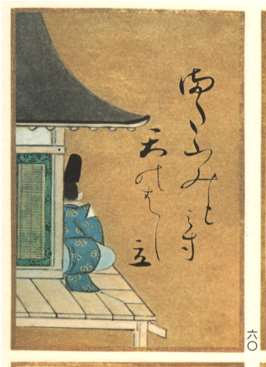 またふみも
みす
天のはし
立
六〇